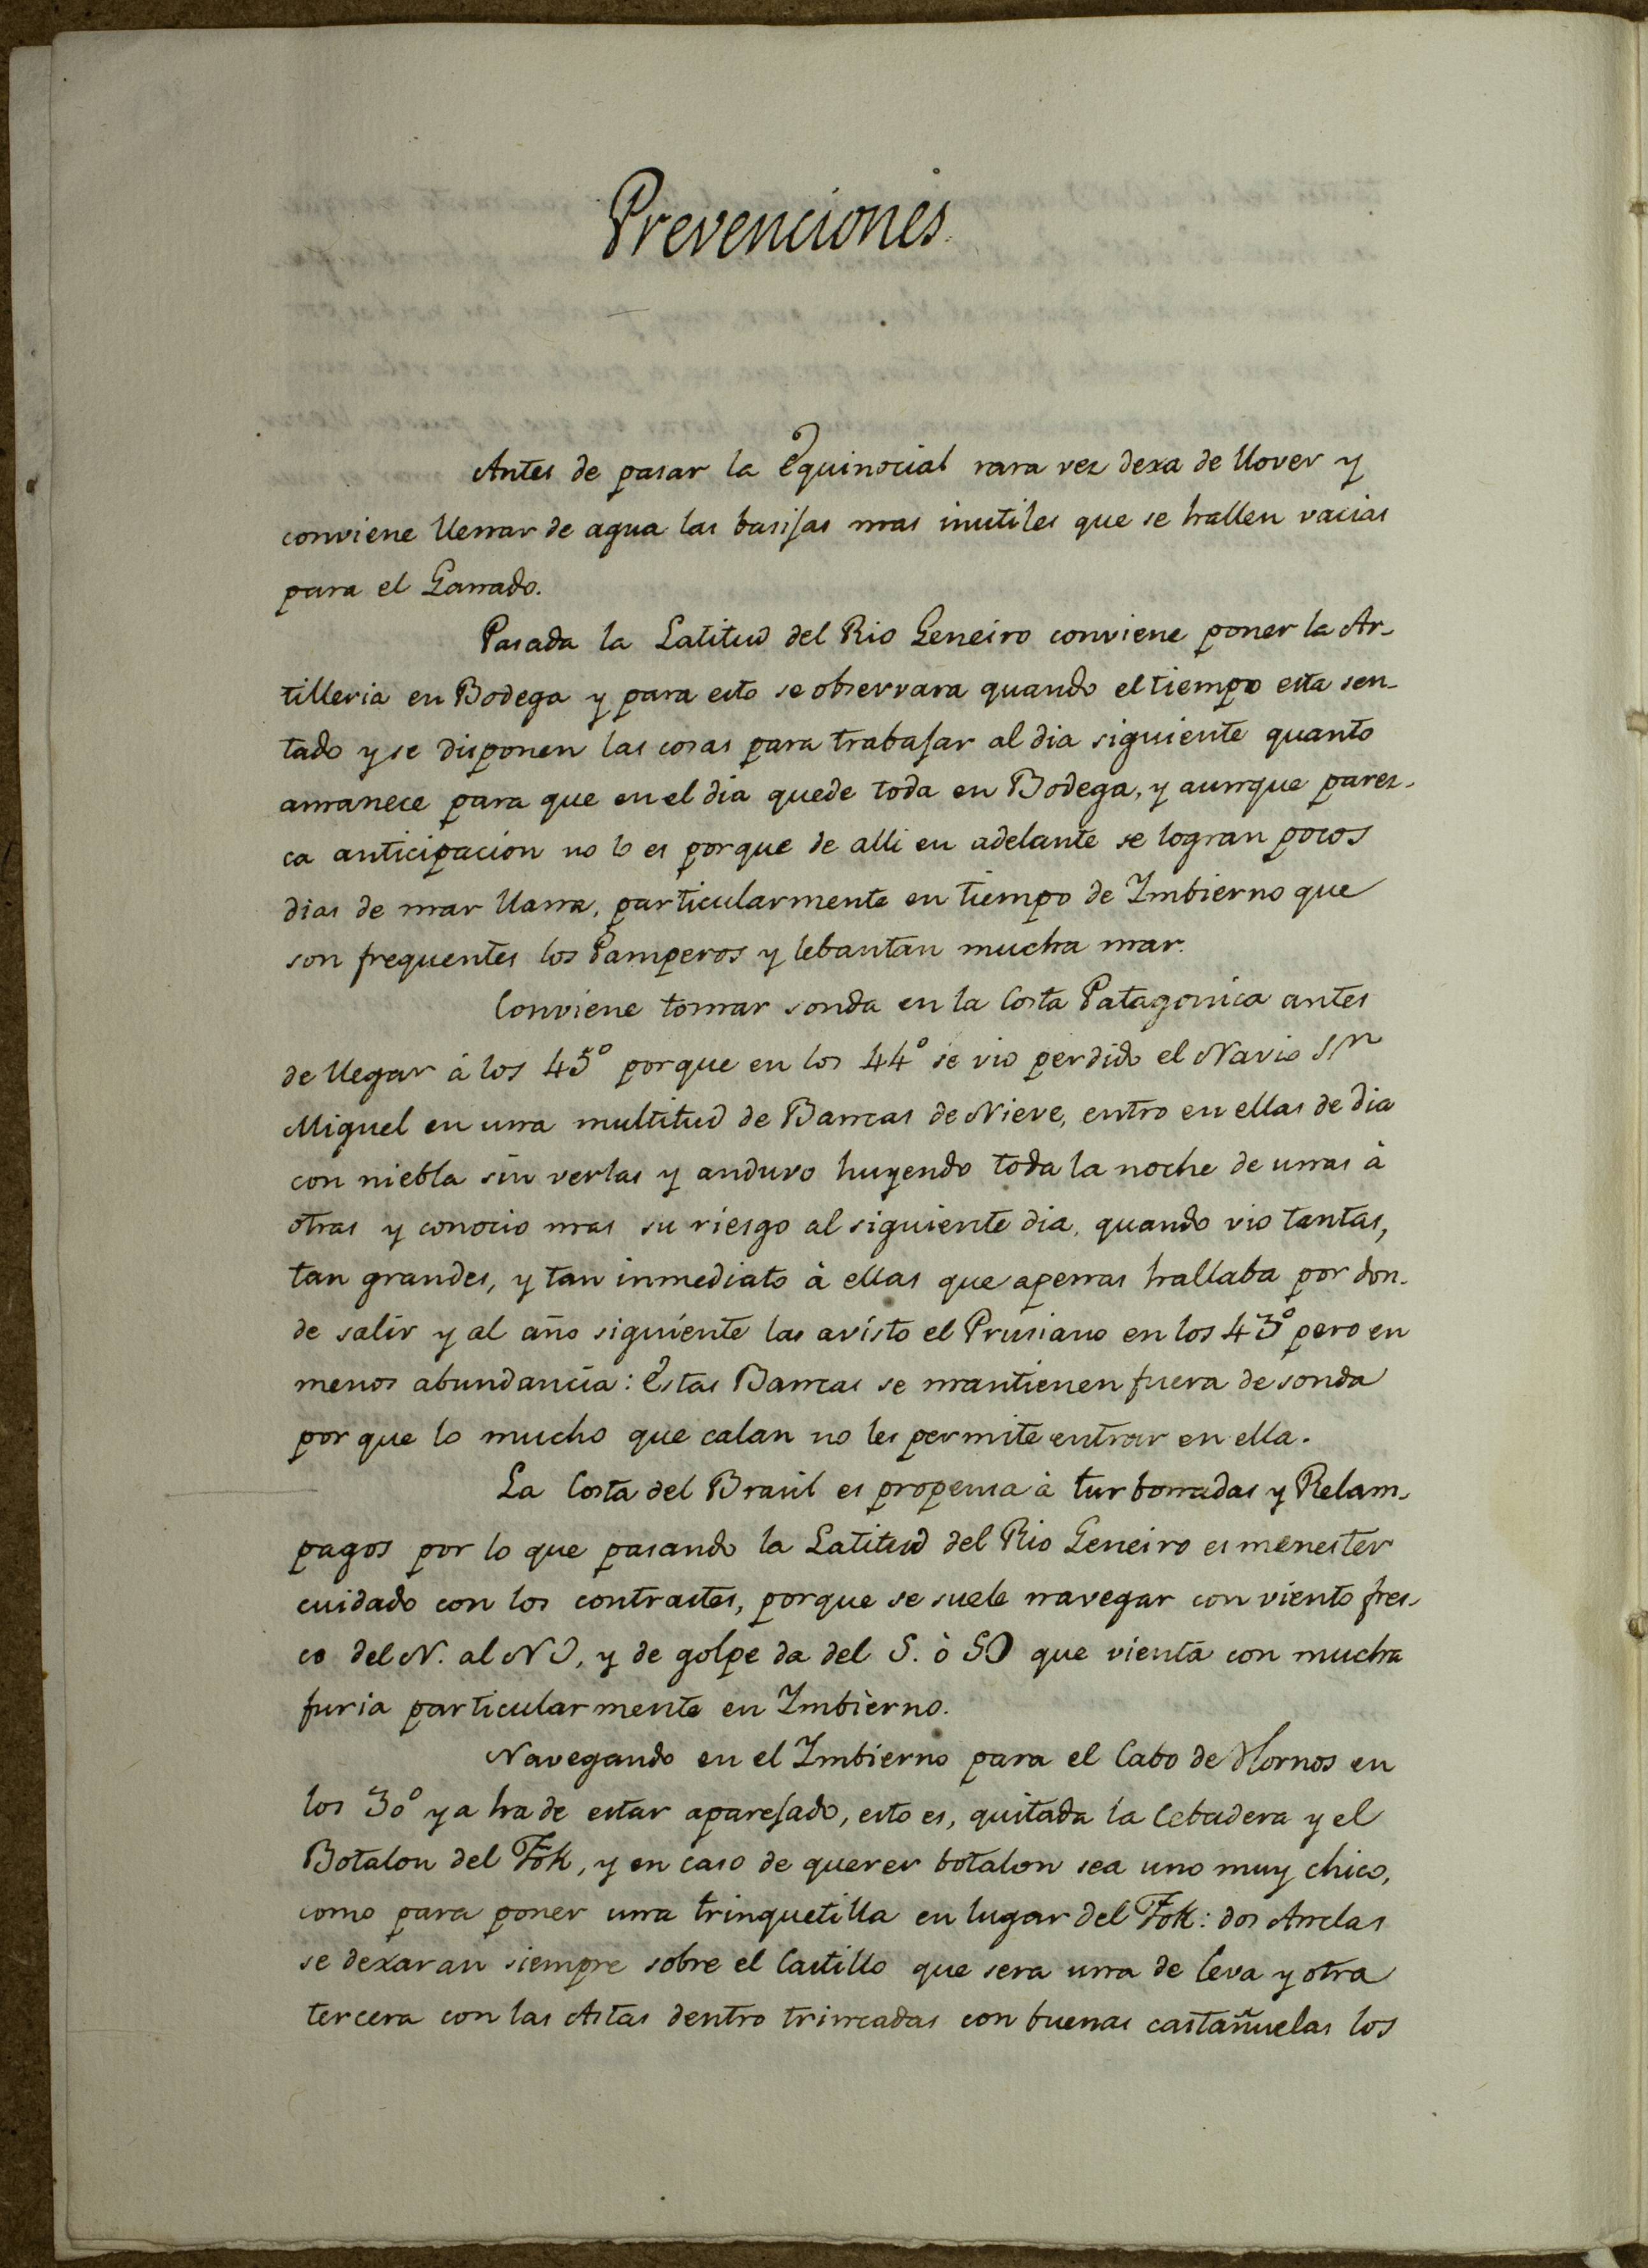 Prevenciones.
Antes de pasar la Equinocial rara vez dexa de llover y
conviene llenar de agua las basijas mas inutiles que se hallen vacias
para el Ganado.
Pasada la Latitud del Rio Geneiro conviene poner la Ar-
tilleria en Bodega y para esto se observara quando el tiempo esta sen-
tado y se disponen las cosas para trabajar al dia siguiente quanto
amanece para que en el dia quede toda en Bodega, y aunque parez-
ca anticipacion no lo es porque de alli en adelante se logran pocos
dias de mar llana, particularmente en tiempo de Imbierno que
son frequentes los Pamperos y lebantan mucha mar.
Conviene tomar sonda en la Costa Patagonica antes
de llegar á los 45° porque en los 44° se vio perdido el Navio Sn
Miguel en una multitud de Bancas de Nieve, entro en ellas de dia
con niebla sin verlas y anduvo huyendo toda la noche de unas à
otras y conocio mas su riesgo al siguiente dia, quando vio tantas,
tan grandes, y tan inmediato à ellas que apenas hallaba por don-
de salir y al año siguiente las avisto el Prusiano en los 43° pero en
menos abundancia: Estas Bancas se mantienen fuera de sonda
por que lo mucho que calan no les permite entrar en ella.
La Costa del Brasil es propensa à turbonadas y Relam-
pagos por lo que pasando la Latitud del Rio Geneiro es menester
cuidado con los contrastes, porque se suele navegar con viento fres-
co del N. al NO, y de golpe da del S. ò SO que vienta con mucha
furia particularmente en Imbierno.
Navegando en el Imbierno para el Cabo de Hornos en
los 30° ya ha de estar aparejado, esto es, quitada la Cebadera y el
Botalon del Fok, y en caso de querer botalon sea uno muy chico,
como para poner una trinquetilla en lugar del Fok: dos Anclas
se dexaran siempre sobre el Castillo que sera una de leva y otra
tercera con las Astas dentro trincadas con buenas castañuelas los